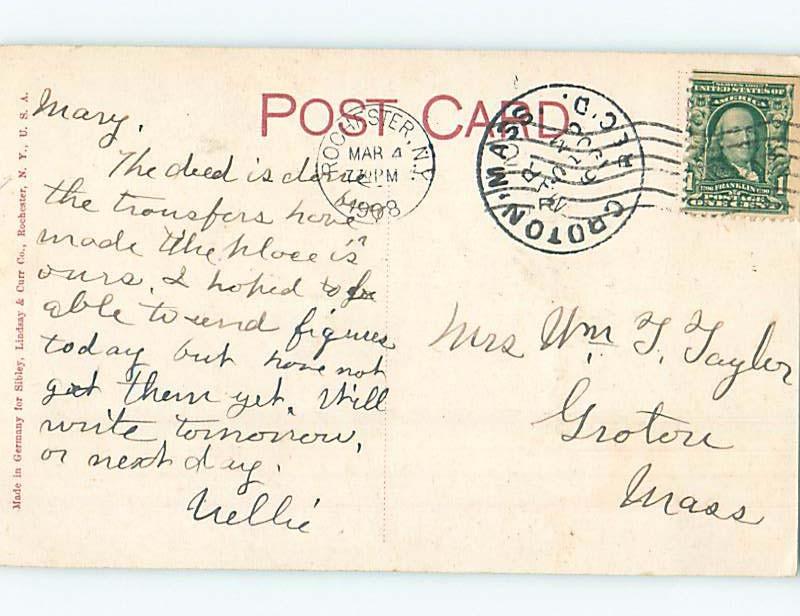 POST CARD
Made in Germany for Sibley, Lindsay & Curr Co., Rochester, N. Y., U. S. A.
Mary,
The deed is done
the transfers have
made the place is
ours. I hoped to be
able to send figures
today but have not
got them yet. Will
write tomorrow,
or next day.
Nellie
ROCHESTER, N.Y.
MAR 4
PM
1908
GROTON, MASS.
REC'D.
UNITED STATES OF
AMERICA
FRANKLIN
POSTAGE
Mrs Wm. F. Taylor
Groton
Mass